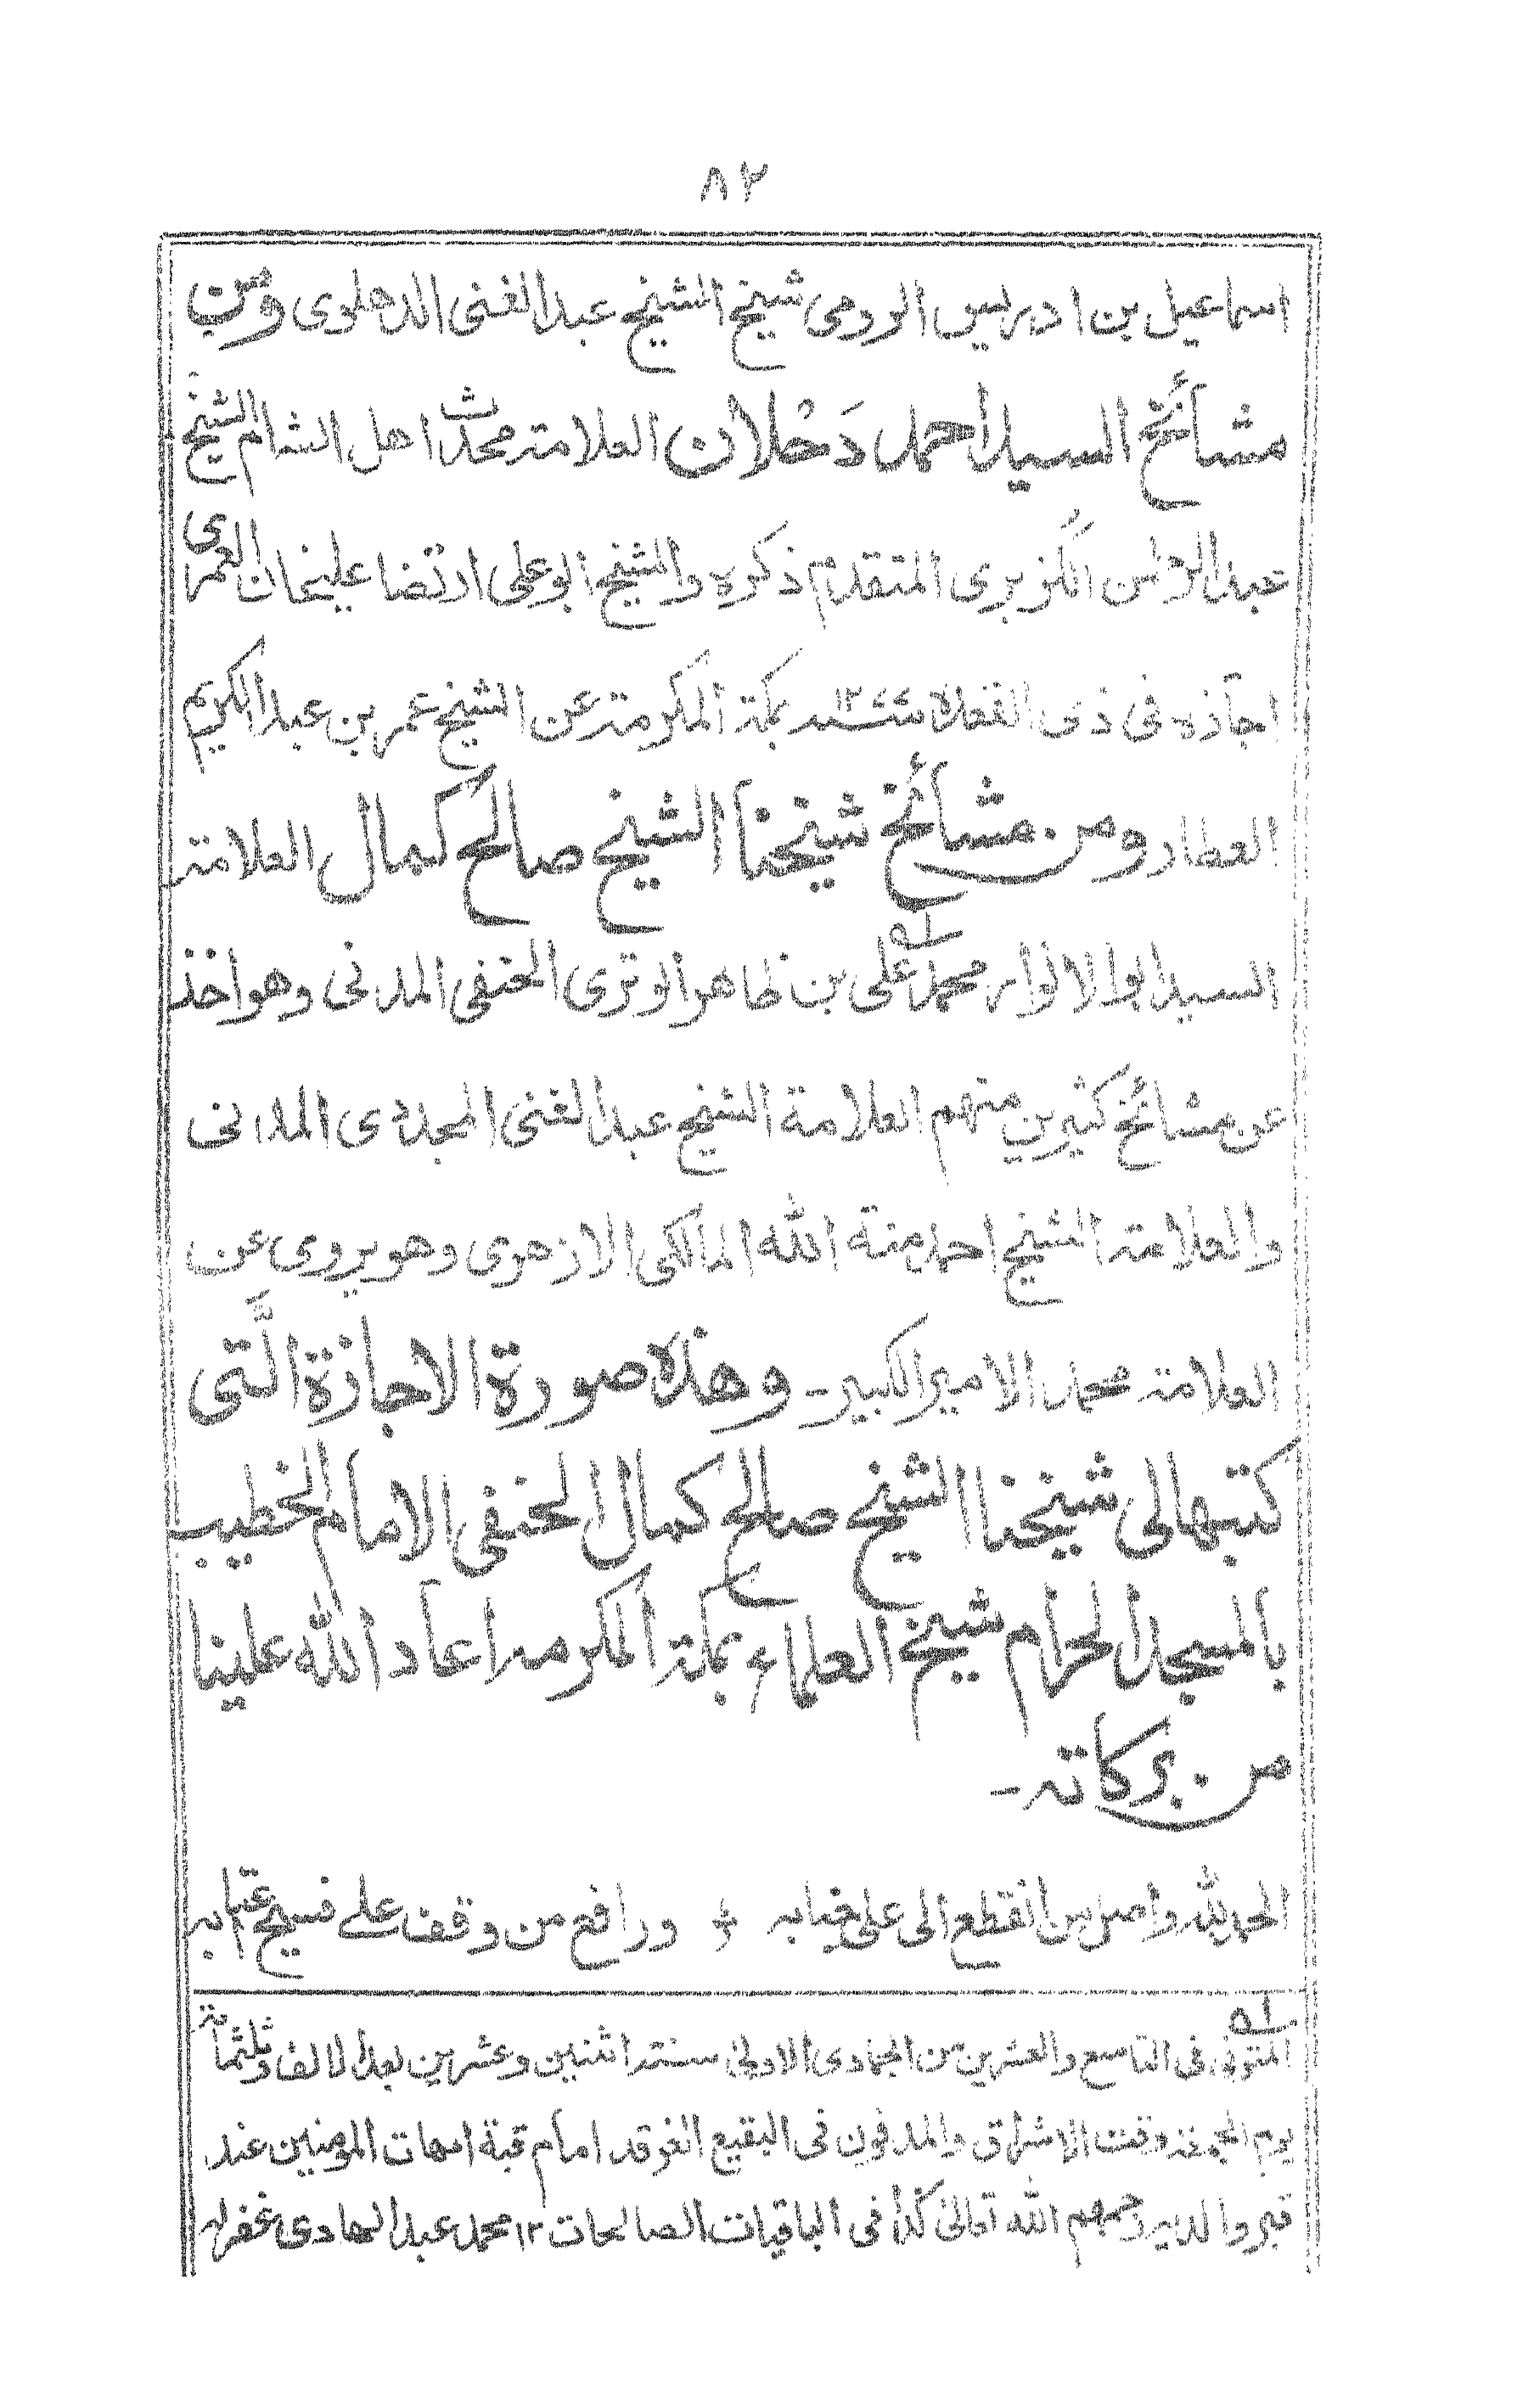 ٨٢
اسماعيل بن ادريس الرومى شيخ الشيخ عبد الغنى الدهلوى ومن
مشائخ السيد احمد دَحْلان العلامة محدث اهل الشام الشيخ
عبد الرحمن الكزبرى المتقدم ذكره والشيخ ابو على ارتضا عليخان العمرى
اجازه فى ذى القعدة سنة بمكة المكرمة عن الشيخ عمر بن عبد الكريم
العطار ومن مشائخ شيخنا الشيخ صالح كمال العلامة
السيد ابو الانوار محمد على بن ظاهر الوترى الحنفى المدنى وهو اخذ
عن مشائخ كثيرين منهم العلامة الشيخ عبد الغنى المجددى المدنى
والعلامة الشيخ احمد منة الله المالكى الازهرى وهو يروى عن
العلامة محمد الامير الكبير ـ وهذه صورة الاجازة الَّتى
كتبها لى شيخنا الشيخ صالح كمال الحنفى الامام الخطيب
بالمسجد الحرام شيخ العلماء بمكة المكرمة اعاد الله علينا
من بركاته ـ
الحمد لله واصل من انقطع الى على جنابه ؞ ورافع من وقف على فسيح عتابه
له المتوفى فى التاسع والعشرين من الجمادى الاولىٰ سنة اثنين وعشرين بعد الالف وثلثمائة
يوم الجمعة وقت الاشراق والمدفون فى البقيع الغرقد امام قبة امهات المومنين عند
قبر والديه رحمهم الله تعالىٰ كذا فى الباقيات الصالحات ١٢ محمد عبد الهادى غفر له